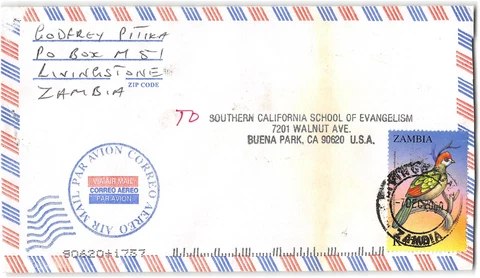 GODFREY PITIKA
PO BOX M 51
LIVINGSTONE
ZIP CODE
ZAMBIA
TO
SOUTHERN CALIFORNIA SCHOOL OF EVANGELISM
7201 WALNUT AVE.
BUENA PARK, CA 90620 U.S.A.
ZAMBIA
ZAMBIA
AIR MAIL PAR AVION CORREO AEREO
VIA AIR MAIL
CORREO AEREO
PAR AVION
90620+1737